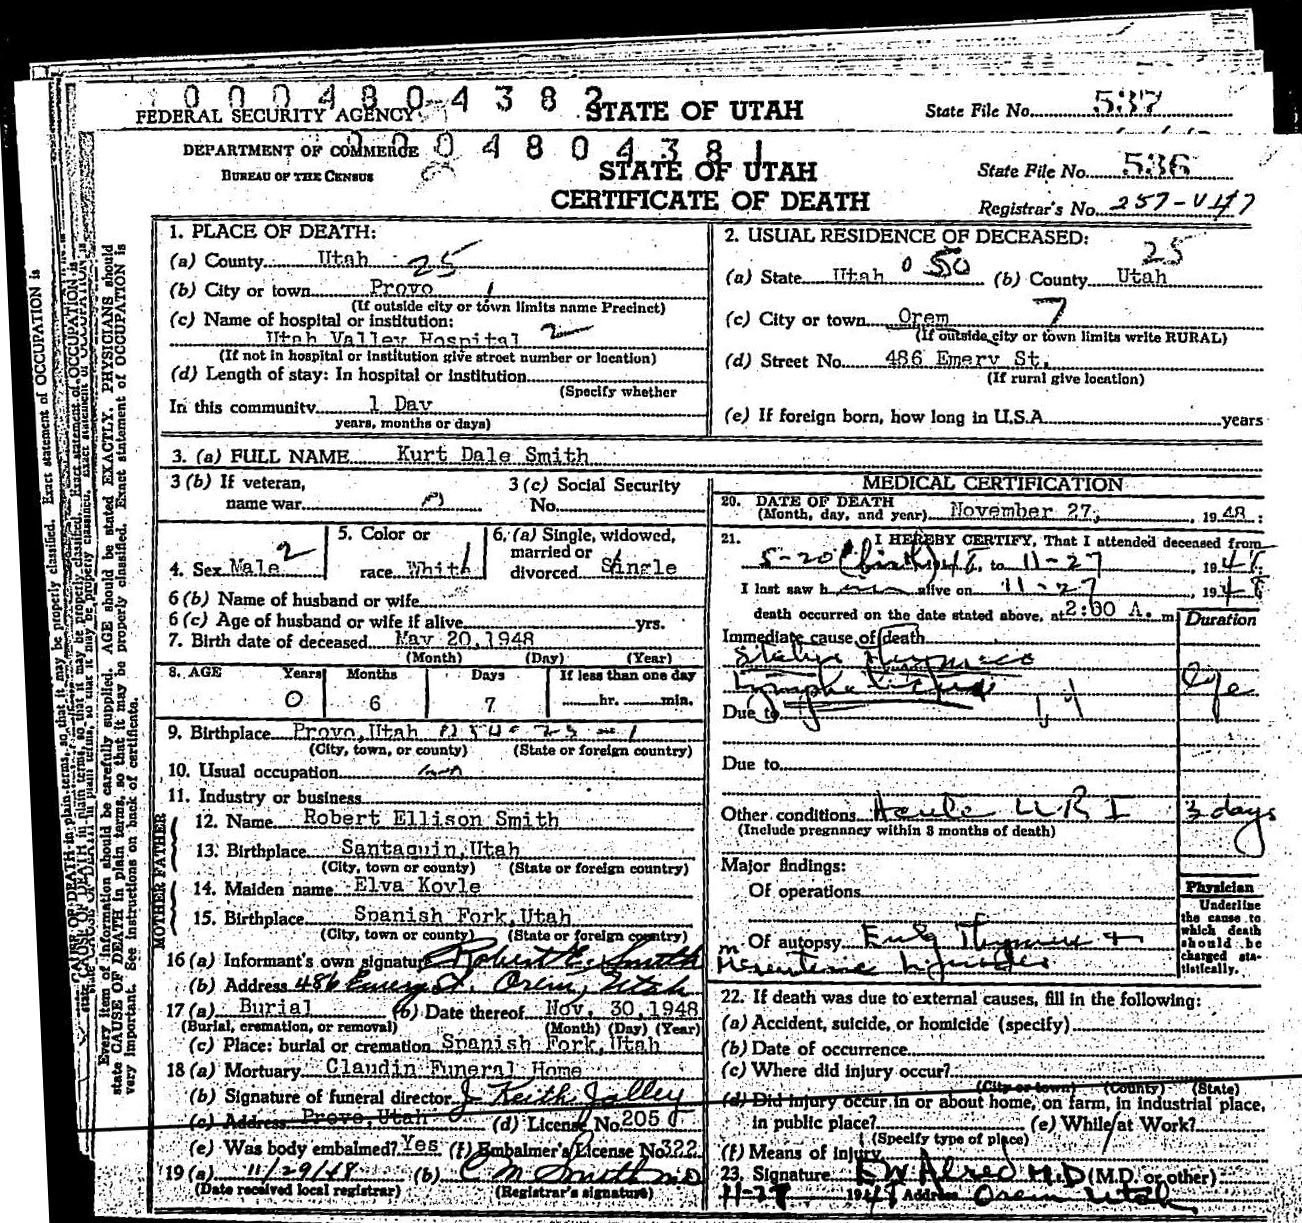 0 0 0 4 8 0 4 3 8 2
FEDERAL SECURITY AGENCY STATE OF UTAH State File No. 537
DEPARTMENT OF COMMERCE 0 4 8 0 4 3 8 1
BUREAU OF THE CENSUS STATE OF UTAH State File No. 536
CERTIFICATE OF DEATH Registrar's No. 257-
1. PLACE OF DEATH:
(a) County Utah 25
(b) City or town Provo 1
(If outside city or town limits name Precinct)
(c) Name of hospital or institution:
Utah Valley Hospital 2
(If not in hospital or institution give street number or location)
(d) Length of stay: In hospital or institution
(Specify whether
In this community 1 Day
years, months or days)
2. USUAL RESIDENCE OF DECEASED:
25
(a) State Utah 0 50 (b) County Utah
(c) City or town Orem 7
(If outside city or town limits write RURAL)
(d) Street No. 486 Emery St.
(If rural give location)
(e) If foreign born, how long in U.S.A. years
3. (a) FULL NAME Kurt Dale Smith
3 (b) If veteran, name war 3 (c) Social Security No.
4. Sex Male 2 5. Color or race White 6. (a) Single, widowed, married or divorced Single
6 (b) Name of husband or wife
6 (c) Age of husband or wife if alive yrs.
7. Birth date of deceased May 20, 1948
(Month) (Day) (Year)
8. AGE Years Months Days If less than one day
0 6 7 hr. min.
9. Birthplace Provo, Utah
(City, town, or county) (State or foreign country)
10. Usual occupation
11. Industry or business
FATHER
12. Name Robert Ellison Smith
13. Birthplace Santaquin, Utah
(City, town or county) (State or foreign country)
MOTHER
14. Maiden name Elva Koyle
15. Birthplace Spanish Fork, Utah
(City, town or county) (State or foreign country)
16 (a) Informant's own signature Robert E. Smith
(b) Address 486 Emery St. Orem, Utah
17 (a) Burial (b) Date thereof Nov. 30, 1948
(Burial, cremation, or removal) (Month) (Day) (Year)
(c) Place: burial or cremation Spanish Fork, Utah
18 (a) Mortuary Claudin Funeral Home
(b) Signature of funeral director J Keith Jolley
(c) Address Provo, Utah (d) License No. 205
(e) Was body embalmed? Yes (f) Embalmer's License No. 322
19 (a) 11/29/48 (b) C M Smith MD
(Date received local registrar) (Registrar's signature)
MEDICAL CERTIFICATION
20. DATE OF DEATH
(Month, day, and year) November 27, 1948:
21. I HEREBY CERTIFY, That I attended deceased from
5-20 (birth) 48, to 11-27, 1948
I last saw him alive on 11-27, 1948
death occurred on the date stated above, at 2:00 A. m Duration
Immediate cause of death
Status Thymico
Lymphaticus
Due to
Due to
Other conditions Acute URI 3 days
(Include pregnancy within 3 months of death)
Major findings:
Of operations
Of autopsy Enlg Thymus +
Mesenteric Lymph nodes
Physician
Underline
the cause to
which death
should be
charged sta-
tistically.
22. If death was due to external causes, fill in the following:
(a) Accident, suicide, or homicide (specify)
(b) Date of occurrence
(c) Where did injury occur?
(City or town) (County) (State)
(d) Did injury occur in or about home, on farm, in industrial place,
in public place? (e) While at Work?
(Specify type of place)
(f) Means of injury
23. Signature M.D (M.D. or other)
1948 Address Orem Utah
Every item of information should be carefully supplied. AGE should be stated EXACTLY. PHYSICIANS should
state CAUSE OF DEATH in plain terms, so that it may be properly classified. Exact statement of OCCUPATION is
very important. See instructions on back of certificate.